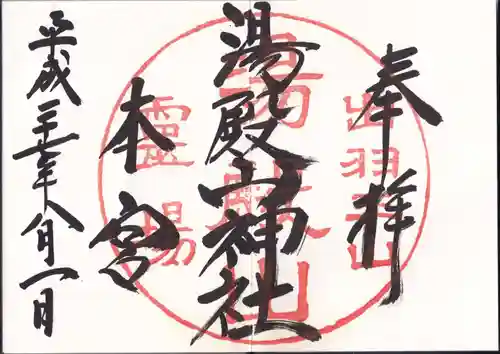 奉拝
出羽三山
湯殿山神社
湯殿山
本宮
靈場
平成二十七年八月一日